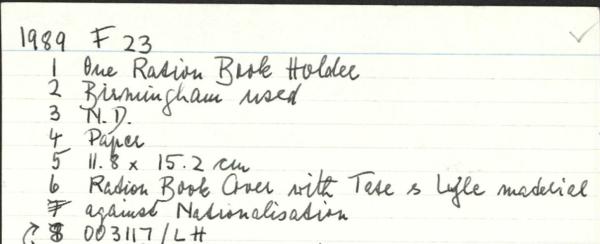 1989 F 23
1 One Ration Book Holder
2 Birmingham used
3 N.D.
4 Paper
5 11.8 x 15.2 cm
6 Ration Book Cover with Tate & Lyle material
7 against Nationalisation
8 003117/LH